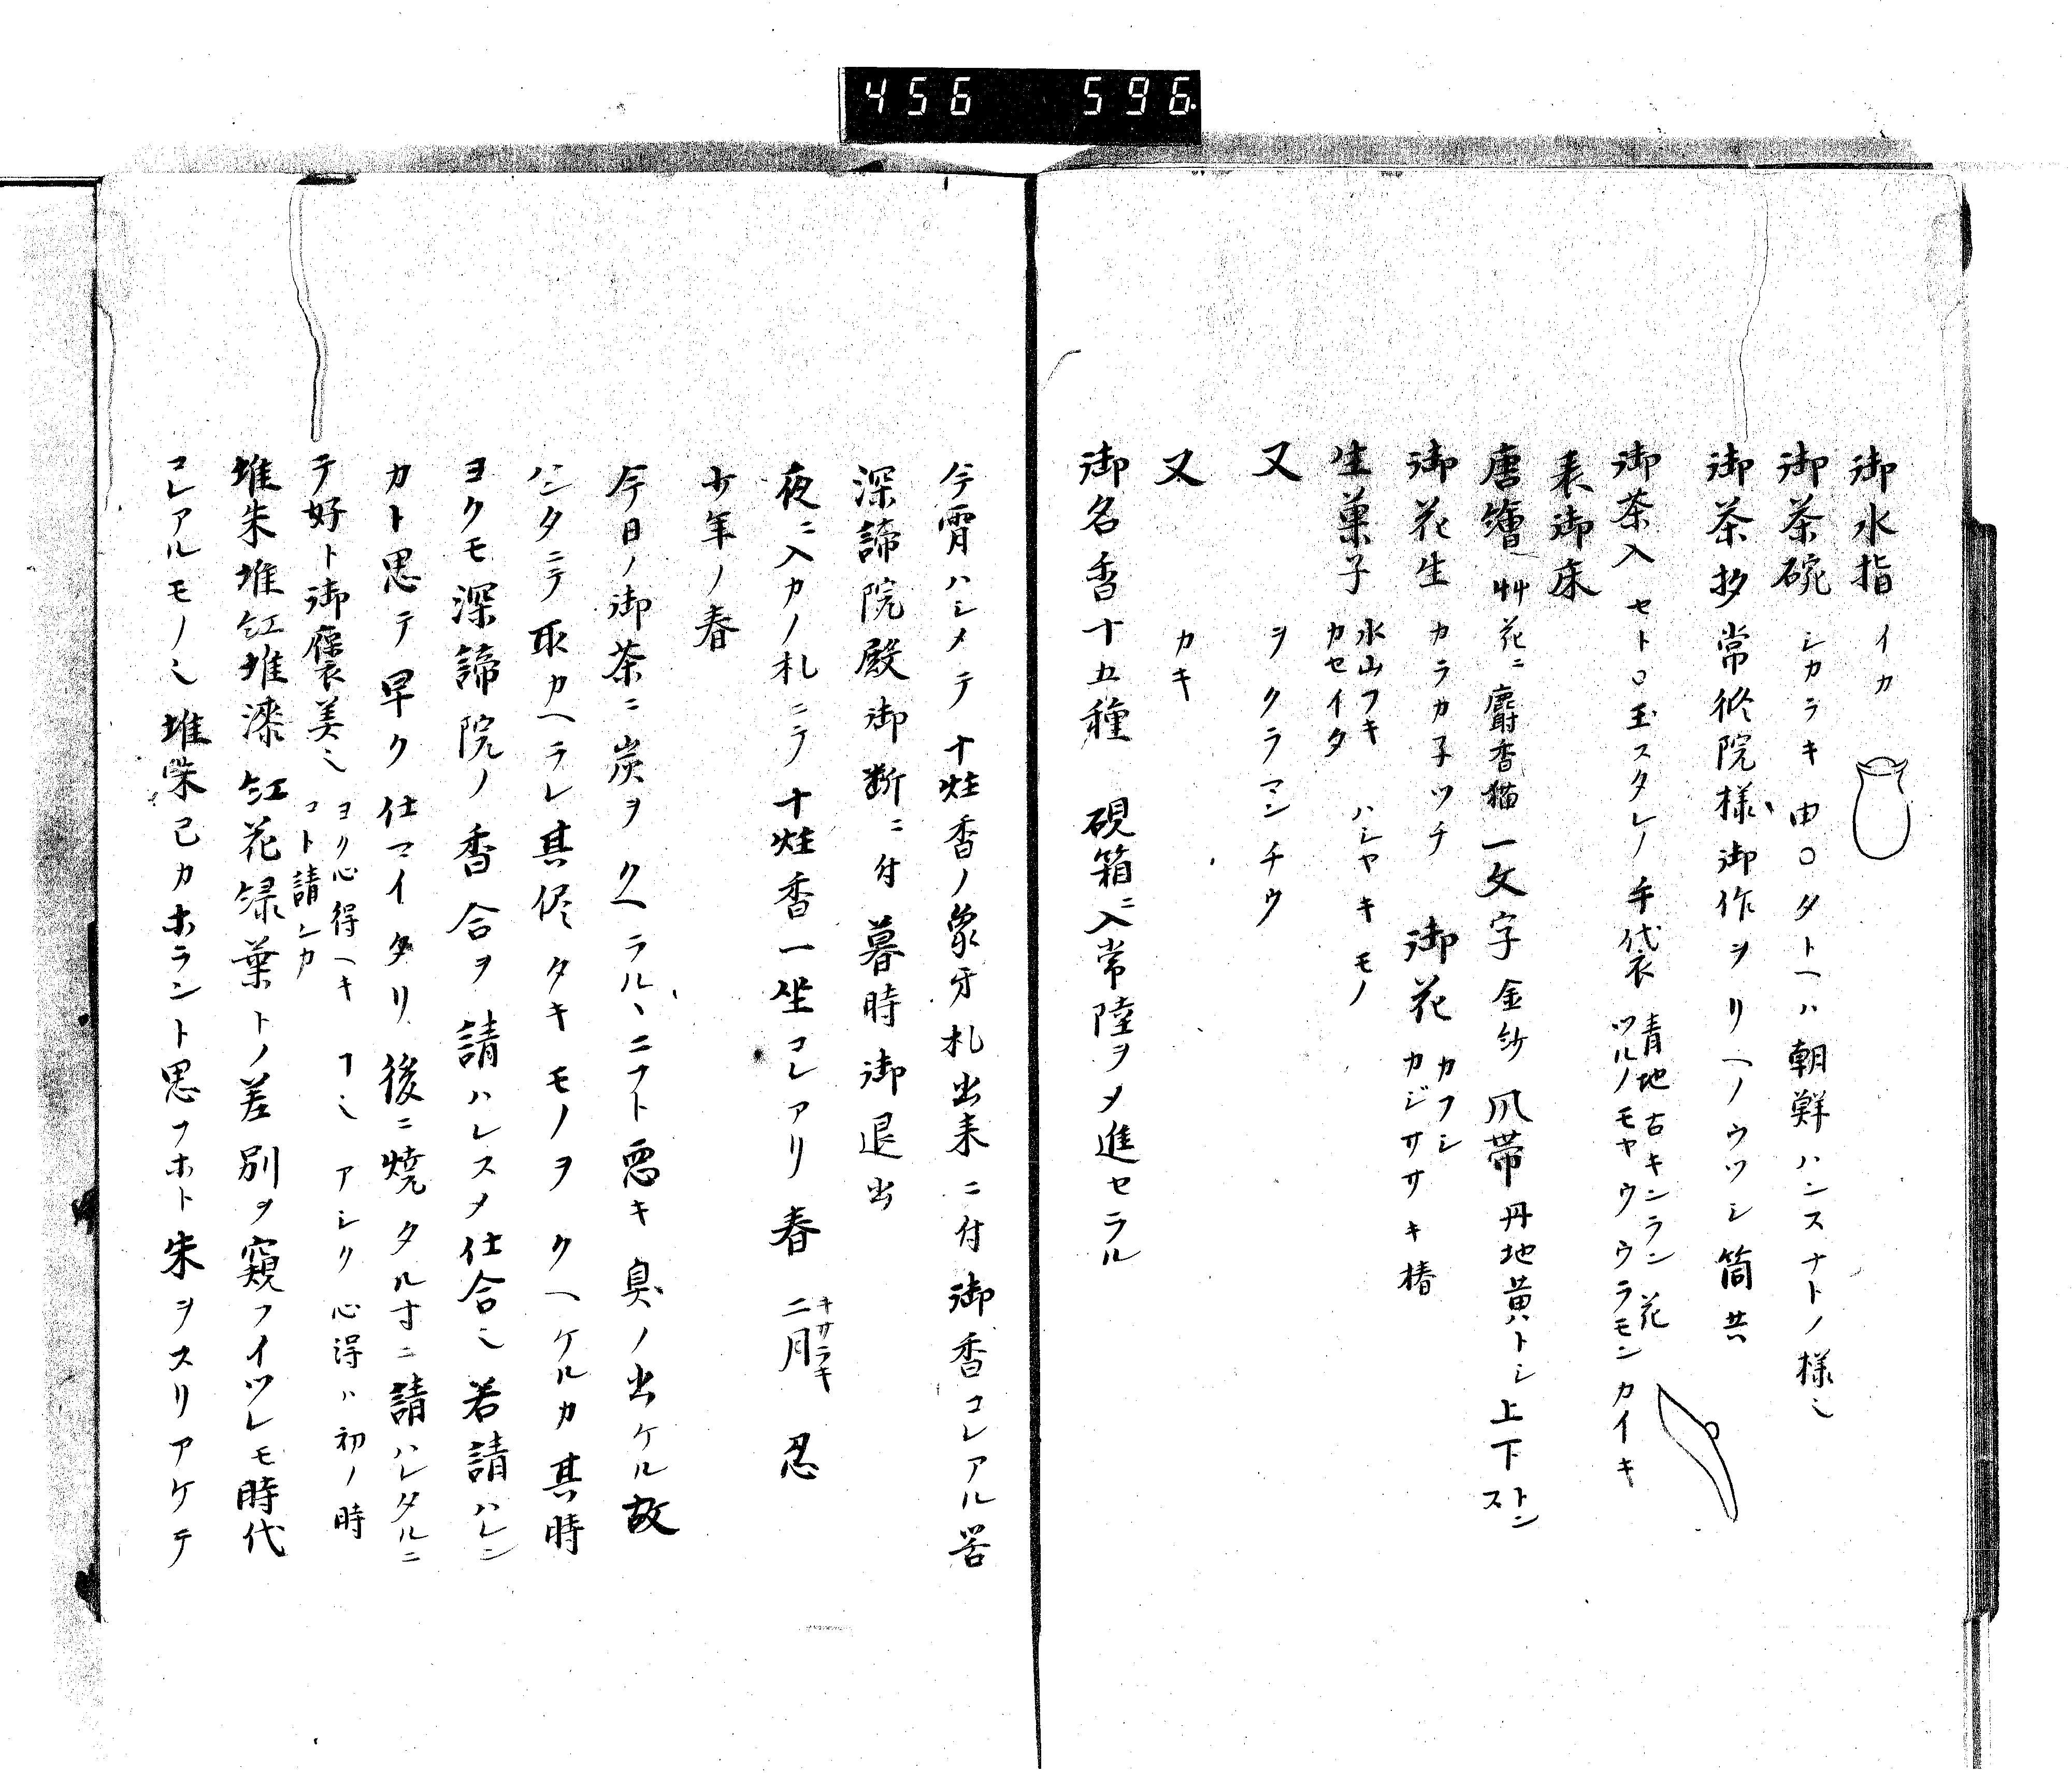 456 596.
御水指 イカ
御茶碗 シカラキ 由○タトヘハ朝鮮ハンスナトノ様ニ
御茶杓 常修院様御作ヲリヘノウツシ筒共
御茶入 セト○玉スタレノ手袋 青地古キンラン花
ツルノモヤウウラモンカイキ
表御床
唐繪 艸花ニ麝香猫 一文字金紗 爪帯丹地黄トシ上下トン
ス
御花生 カラカ子ツチ 御花 カフシ
カジササキ椿
生菓子 水山フキ ハシヤキモノ
カセイタ
又 ヲクラマンチウ
又 カキ
御名香十五種 硯箱ニ入常陸ヲメ進セラル
今霄ハシメテ十炷香ノ象牙札出来ニ付御香コレアル筈
深諦院殿御断ニ付暮時御退出
夜ニ入カノ札ニテ十炷香一坐コレアリ春 二月キサラキ 忍
少年ノ春
今日ノ御茶ニ炭ヲクヘラルヽニフト悪キ臭ノ出ケル故
ハシタニテ取カヘラレ其侭タキモノヲクヘケルカ其時
ヨクモ深諦院ノ香合ヲ請ハレスメ仕合ニ若請ハレン
カト思テ早ク仕マイタリ後ニ焼タル寸ニ請ハレタルニ
テ好ト御褒美ニ ヨリ心得ヘキヿニアシク心得ハ初ノ時
コト請シカ
堆朱堆紅堆漆紅花緑葉トノ差別ヲ窺フイツレモ時代
コレアルモノニ堆朱己カホラント思フホト朱ヲスリアケテ